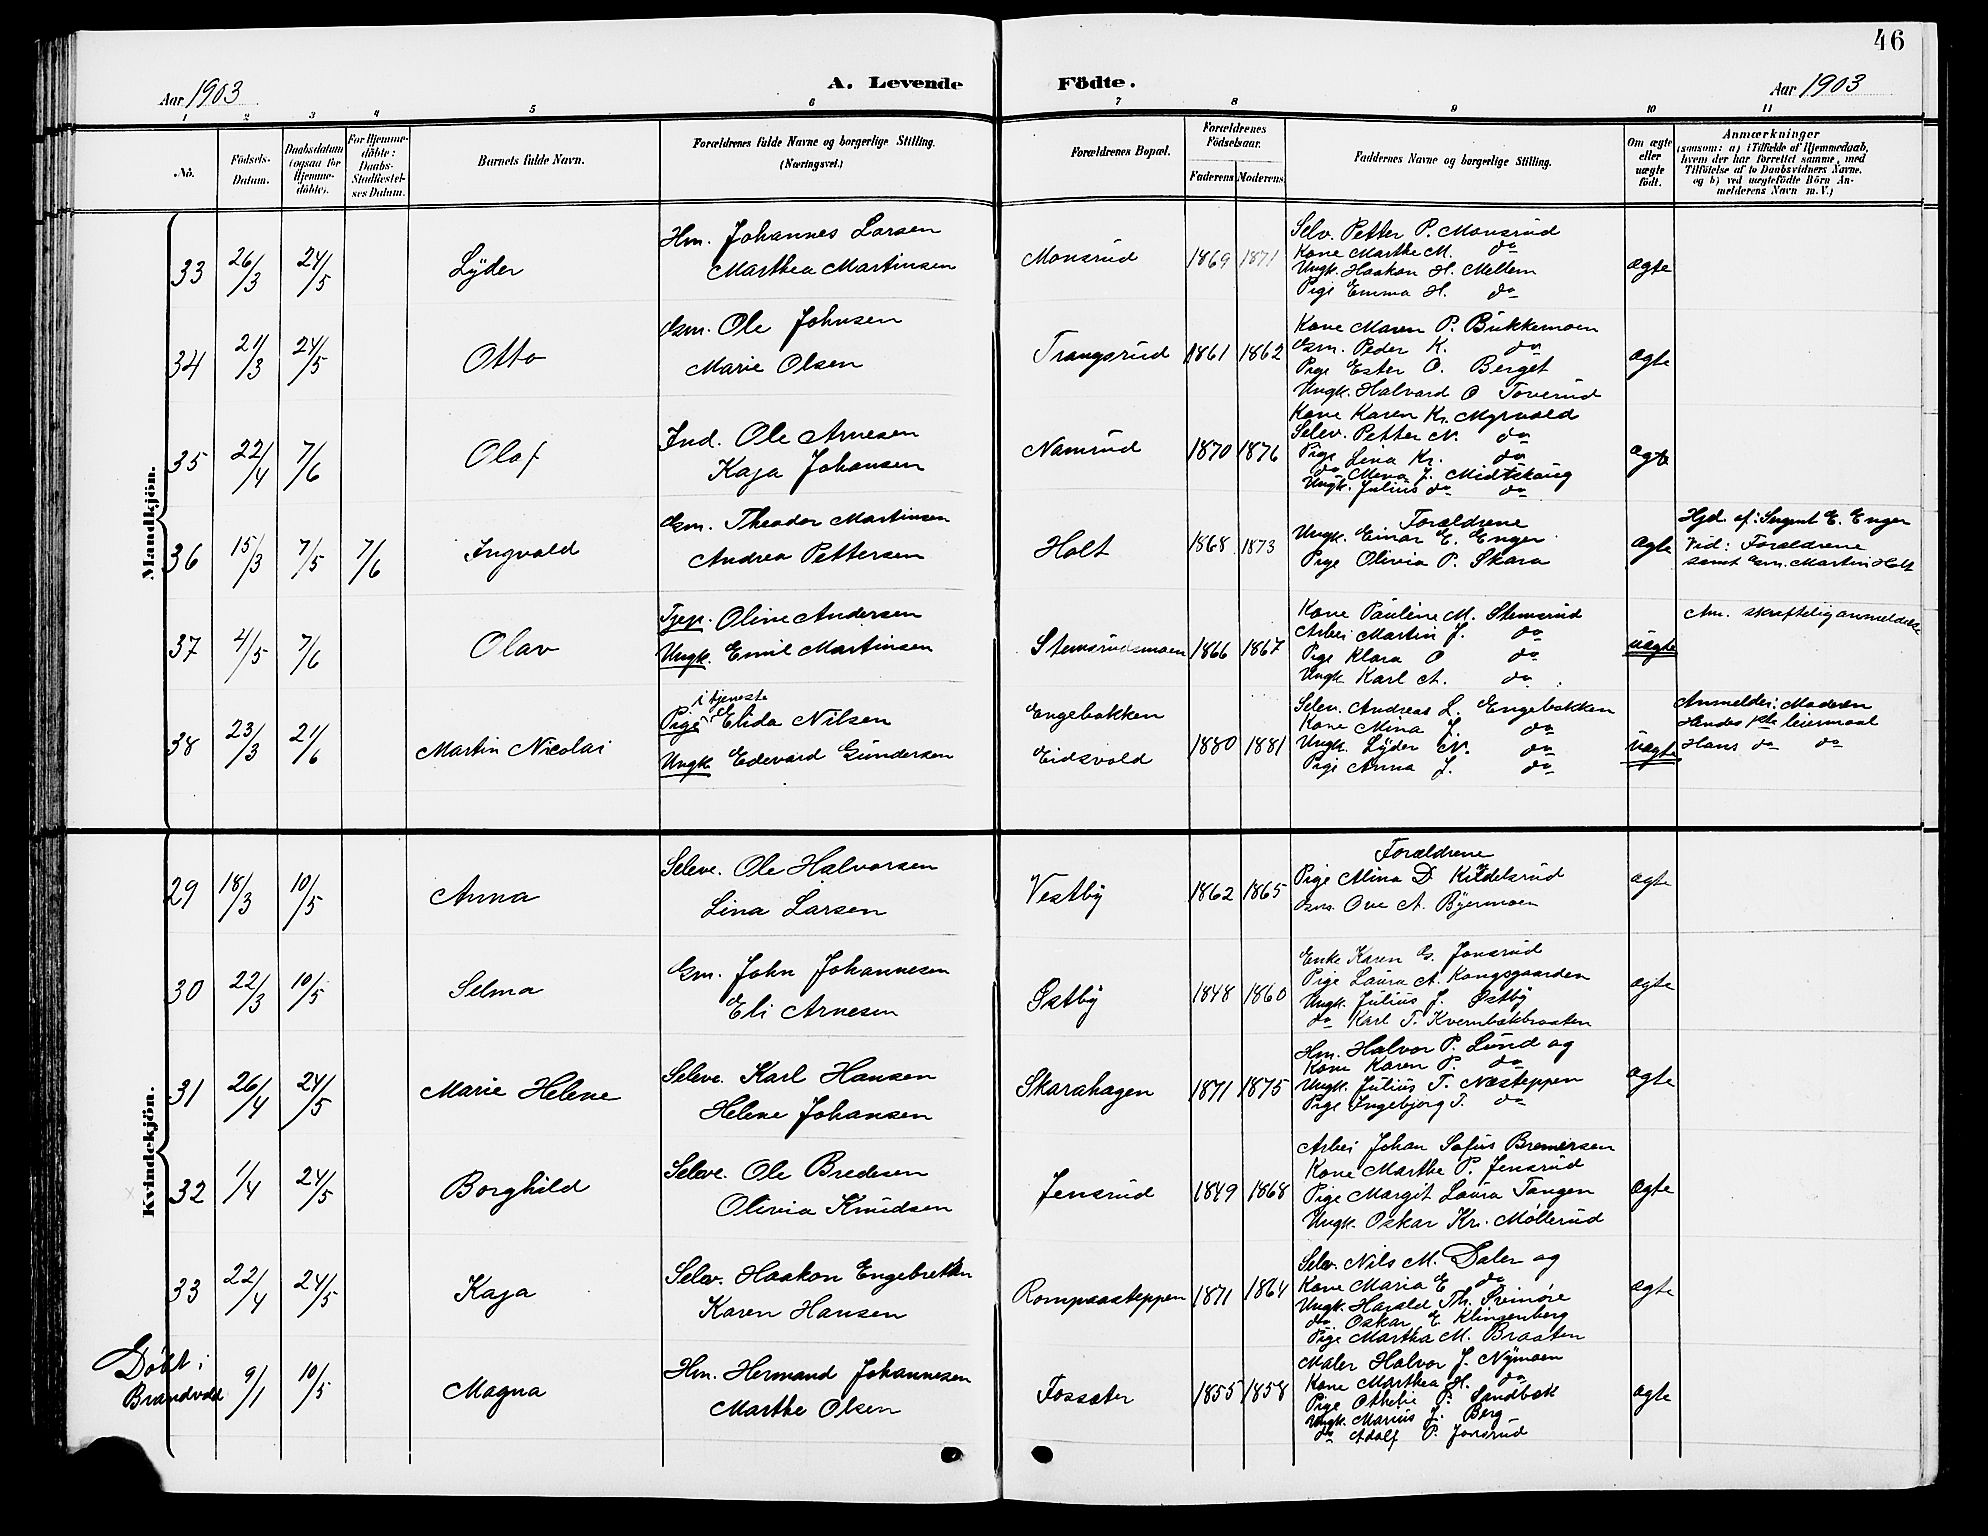 46
Aar 1903
A. Levende Födte.
Aar 1903
1 2 3 4 5 6 7 8 9 10 11
No. Födsels-Datum. Daabsdatum (ogsaa for Hjemme-döbte). For Hjemme-döbte: Daabs-Stadfæstel-ses Datum. Barnets fulde Navn. Forældrenes fulde Navne og borgerlige Stilling. (Næringsvei.) Forældrenes Bopæl. Forældrenes Födselsaar. Faderens Moderens Faddernes Navne og borgerlige Stilling. Om ægte eller uægte födt. Anmærkninger (saasom: a) i Tilfælde af Hjemmedaab, hvem der har forrettet samme, med Tilföielse af to Daabsvidners Navne, og b) ved uægtefödte Börn An-melderens Navn m. V.)
Mandkjön.
33 26/3 24/5 Lyder
Hm. Johannes Larsen
Marthea Martinsen
Monsrud 1869 1871
Selv. Petter P. Monsrud
Kone Marthe M. do
Ungk. Haakon H. Mellem
Pige Emma H. do
ægte
34 21/3 24/5 Otto
Gm. Ole Johnsen
Marie Olsen
Trangsrud 1861 1862
Kone Maren P. Bukkemoen
Gm. Peder K. do
Pige Ester O. Berget
Ungk. Halvard O Toverud
ægte
35 22/4 7/6 Olaf
Ind. Ole Arnesen
Kaja Johansen
Namrud 1870 1876
Kone Karen Kr. Myrvold
Selev. Petter N. do
Pige Lina Kr. do
do Mena J. Midtskoug
Ungk. Julius do do
ægte
36 15/3 7/5 7/6 Ingvald
Gm. Theodor Martinsen
Andrea Pettersen
Holt 1868 1873
Forældrene
Ungk. Einar E. Enger
Pige Olivia P. Skara
ægte
Hjd. af: Sergent E. Enger
Vid: Forældrene
samt Gm. Martin Holt
37 4/5 7/6 Olav
Tjep. Oline Andersen
Ungk. Emil Martinsen
Stemsrudsmoen 1866 1867
Kone Pauline M. Stemsrud
Arbei Martin J. do
Pige Klara O do
Ungk Karl A. do
uægte
An. skriftelig anmeldelse
38 23/3 21/6 Martin Nicolai
i tjeneste
Pige Elida Nilsen
Ungk Edevard Gundersen
Engebakken
Eidsvold
1880 1881
Selev. Andreas L. Engebakken
Kone Mina J. do
Ungk. Lyder N. do
Pige Anna J. do
uægte
Anmelder: Moderen
Hendes 1ste leiermaal
Hans do do
Kvindekjön.
29 18/3 10/5 Anna
Seleve. Ole Halvorsen
Lina Larsen
Vestby 1862 1865
Forældrene
Pige Alina D Kildelsrud
Gm. Ove A. Byermoen
ægte
30 22/3 10/5 Selma
Gm. John Johannesen
Eli Arnesen
Østby 1848 1860
Enke Karen G. Jonsrud
Pige Laura A. Kongsgaarden
Ungk. Julius J. Østby
do Karl T. Kvernbækbraaten
ægte
31 26/4 24/5 Marie Helene
Seleve. Karl Hansen
Helene Johansen
Skarahagen 1871 1875
Hm. Halvor P. Lund og
Kone Karen P. do
Ungk. Julius T. Næsteppen
Pige Ingebjørg T. do
ægte
32 1/4 24/5 Borghild
Seleve. Ole Bredesen
Olivia Knudsen
Jensrud 1849 1868
Arbei Johan Sofus Bremersen
Kone Marthe P. Jensrud
Pige Margit Laura Tangen
Ungk. Oskar Kr. Møllerud
ægte
33 22/4 24/5 Kaja
Selev. Haakon Engebretsen
Karen Hansen
Rompaasteppen 1871 1864
Selev. Nils M. Dalen og
Kone Maria E do
Ungk. Harald Th.
do Oskar E. Klingenberg
Pige Martha M. Braaten
ægte
Døbt i
Brandvold
9/1 10/5 Magna
Hm. Hermand Johannesen
Marthe Olsen
Fossæter 1855 1858
Maler Halvor J. Nymoen
Kone Marthea H. do
Pige Othelie P. Sandbæk
Ungk. Marius J. Berg
do Adolf P. Jonsrud
ægte